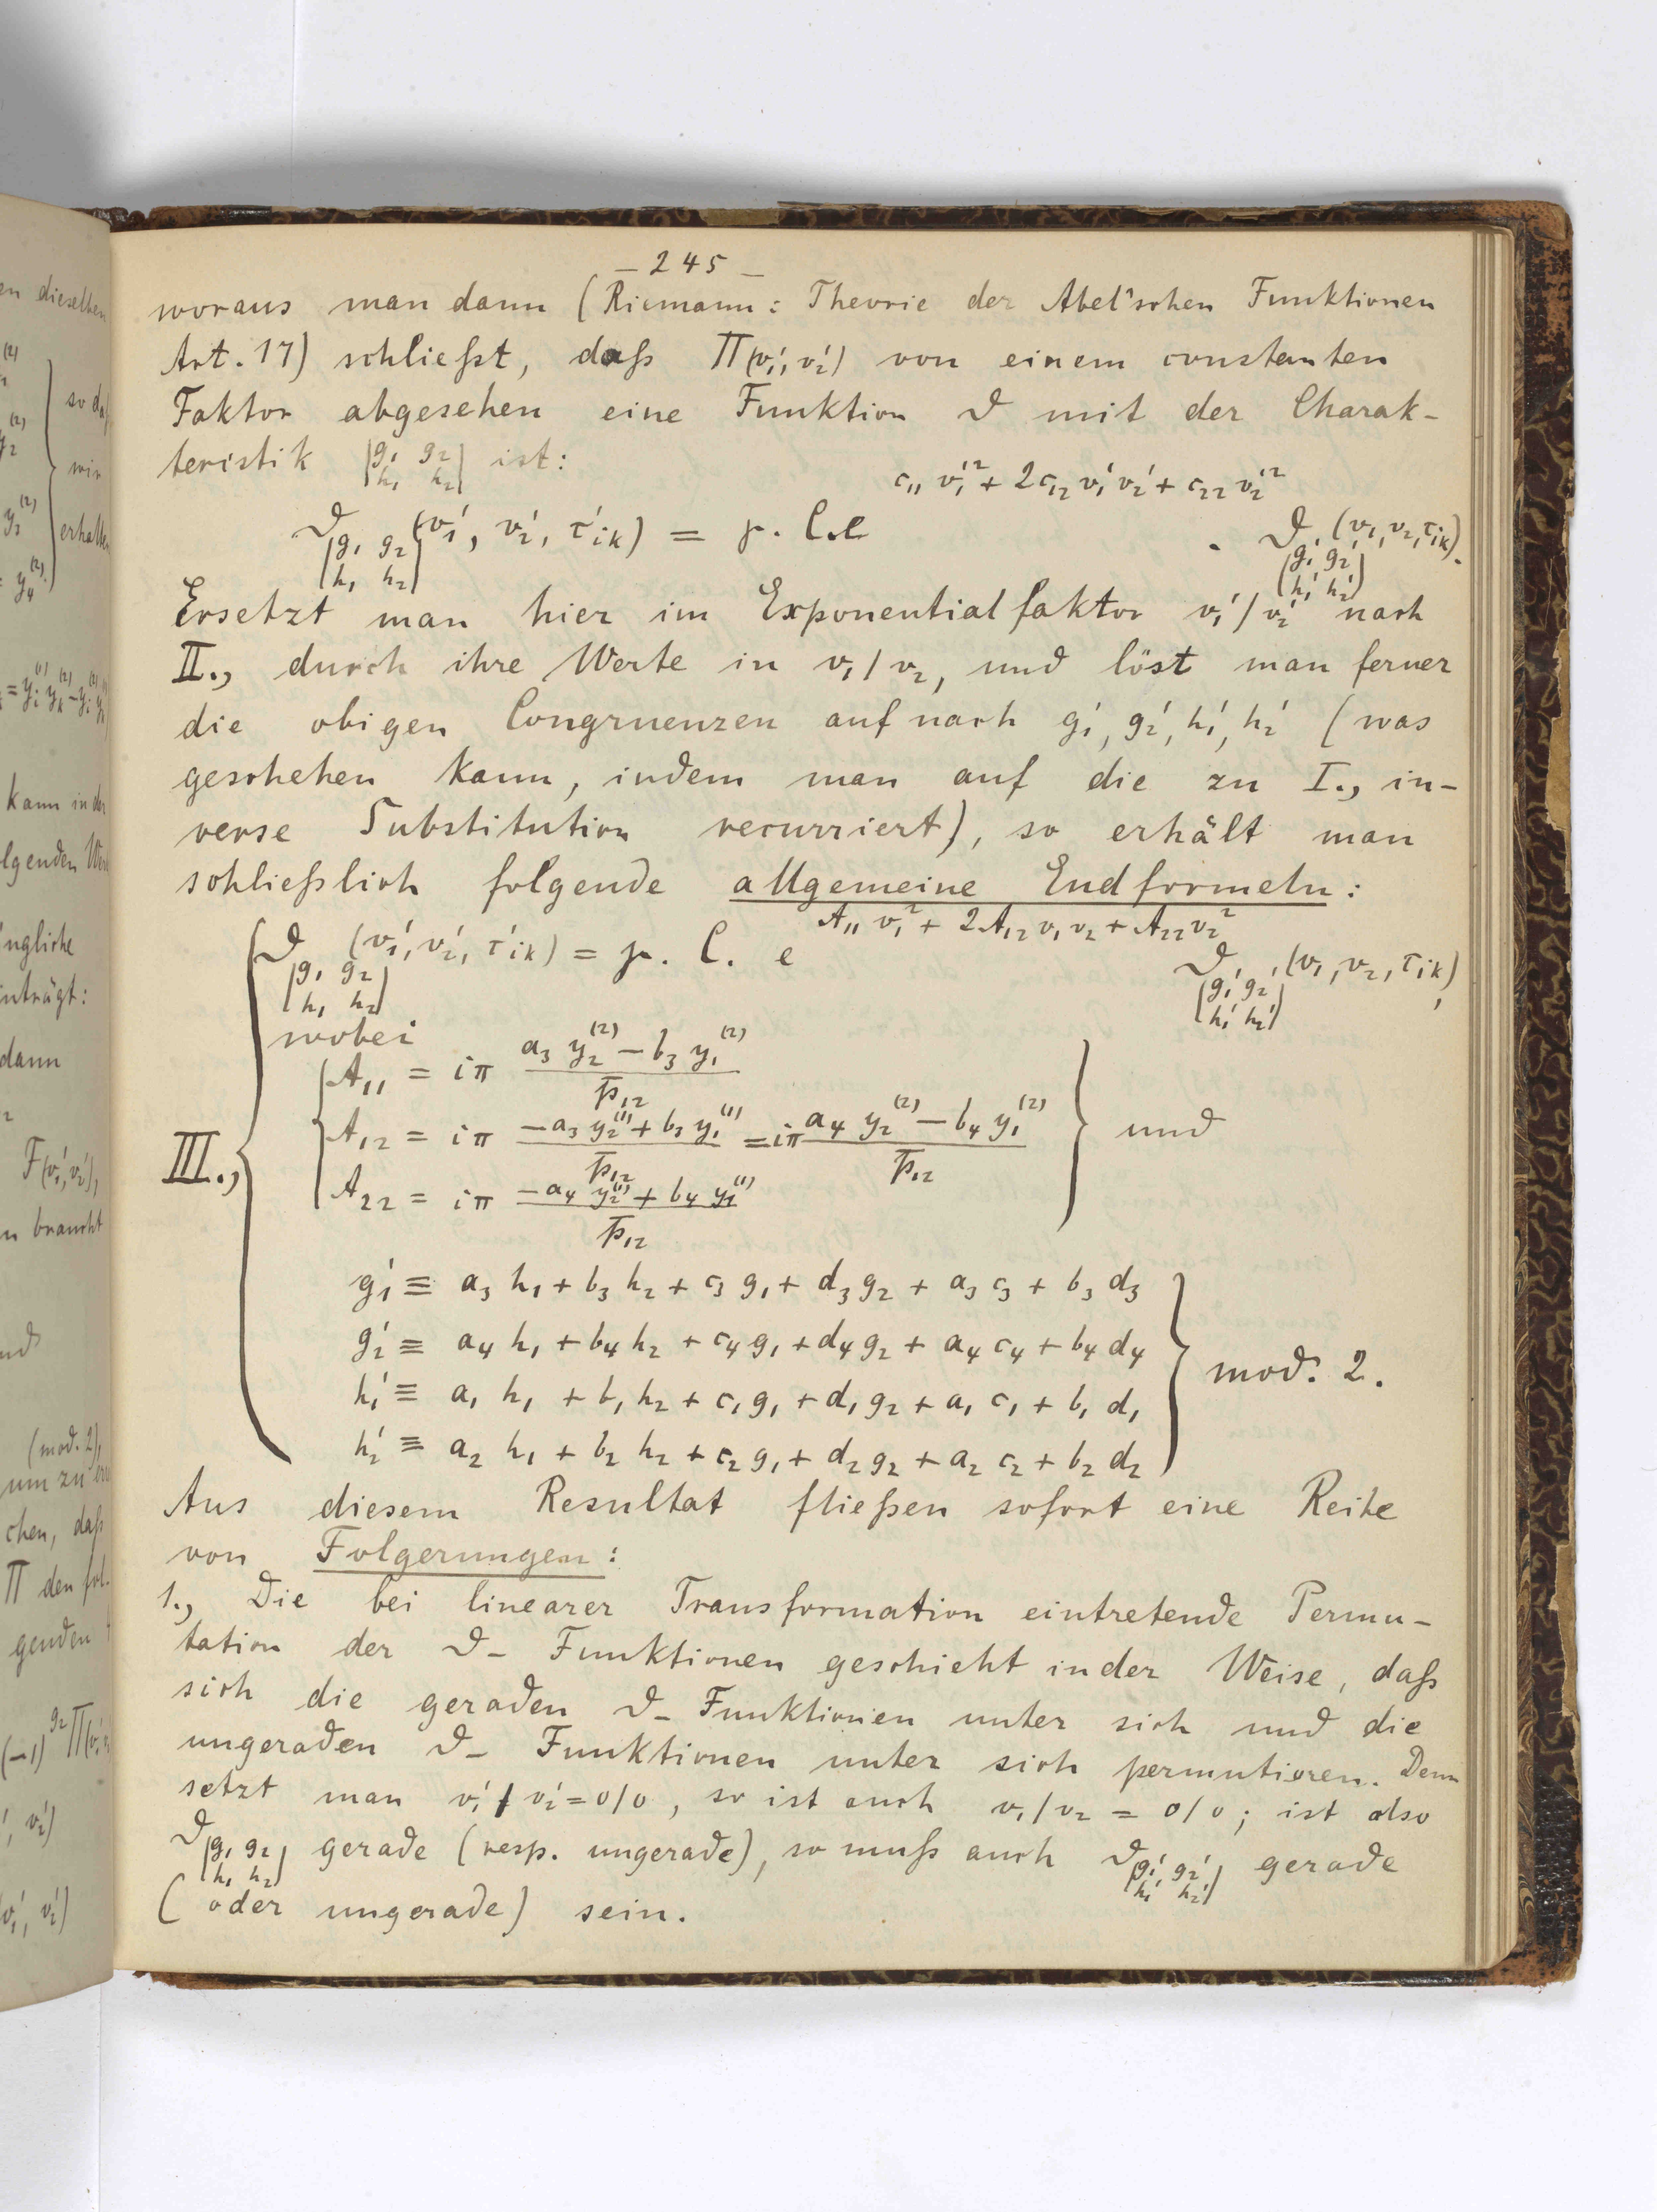 – 245 –
woraus man dann (Riemann: Theorie der Abel'schen Funktionen
Art. 17) schließt, daß Π(v₁', v₂') von einem constanten
Faktor abgesehen eine Funktion ϑ mit der Charak-
teristik |g₁ g₂ / h₁ h₂| ist:
ϑ|g₁ g₂ / h₁ h₂|(v₁', v₂', τ'ik) = p. C. e^(c₁₁ v₁'² + 2c₁₂ v₁' v₂' + c₂₂ v₂'²) . ϑ|g₁' g₂' / h₁' h₂'|(v₁, v₂, τik).
Ersetzt man hier im Exponentialfaktor v₁'/v₂' nach
II., durch ihre Werte in v₁/v₂, und löst man ferner
die obigen Congruenzen auf nach g₁', g₂', h₁', h₂' (was
geschehen kann, indem man auf die zu I., in-
verse Substitution recurriert), so erhält man
schließlich folgende allgemeine Endformeln:
ϑ|g₁ g₂ / h₁ h₂|(v₁', v₂', τ'ik) = p. C. e^(A₁₁ v₁² + 2A₁₂ v₁ v₂ + A₂₂ v₂²) ϑ|g₁' g₂' / h₁' h₂'|(v₁, v₂, τik),
wobei
A₁₁ = iπ (a₃ y₂⁽²⁾ – b₃ y₁⁽²⁾) / p₁₂
III., A₁₂ = iπ (–a₃ y₂⁽¹⁾ + b₃ y₁⁽¹⁾) / p₁₂ = iπ (a₄ y₂⁽²⁾ – b₄ y₁⁽²⁾) / p₁₂ und
A₂₂ = iπ (–a₄ y₂⁽¹⁾ + b₄ y₁⁽¹⁾) / p₁₂
g₁' ≡ a₃ h₁ + b₃ h₂ + c₃ g₁ + d₃ g₂ + a₃ c₃ + b₃ d₃
g₂' ≡ a₄ h₁ + b₄ h₂ + c₄ g₁ + d₄ g₂ + a₄ c₄ + b₄ d₄
h₁' ≡ a₁ h₁ + b₁ h₂ + c₁ g₁ + d₁ g₂ + a₁ c₁ + b₁ d₁
h₂' ≡ a₂ h₁ + b₂ h₂ + c₂ g₁ + d₂ g₂ + a₂ c₂ + b₂ d₂
mod. 2.
Aus diesem Resultat fließen sofort eine Reihe
von Folgerungen:
1., Die bei linearer Transformation eintretende Permu-
tation der ϑ– Funktionen geschieht in der Weise, daß
sich die geraden ϑ– Funktionen unter sich und die
ungeraden ϑ– Funktionen unter sich permutieren. Denn
setzt man v₁'/v₂' = 0/0, so ist auch v₁/v₂ = 0/0; ist also
ϑ|g₁ g₂ / h₁ h₂| gerade (resp. ungerade), so muß auch ϑ|g₁' g₂' / h₁' h₂'| gerade
(oder ungerade) sein.